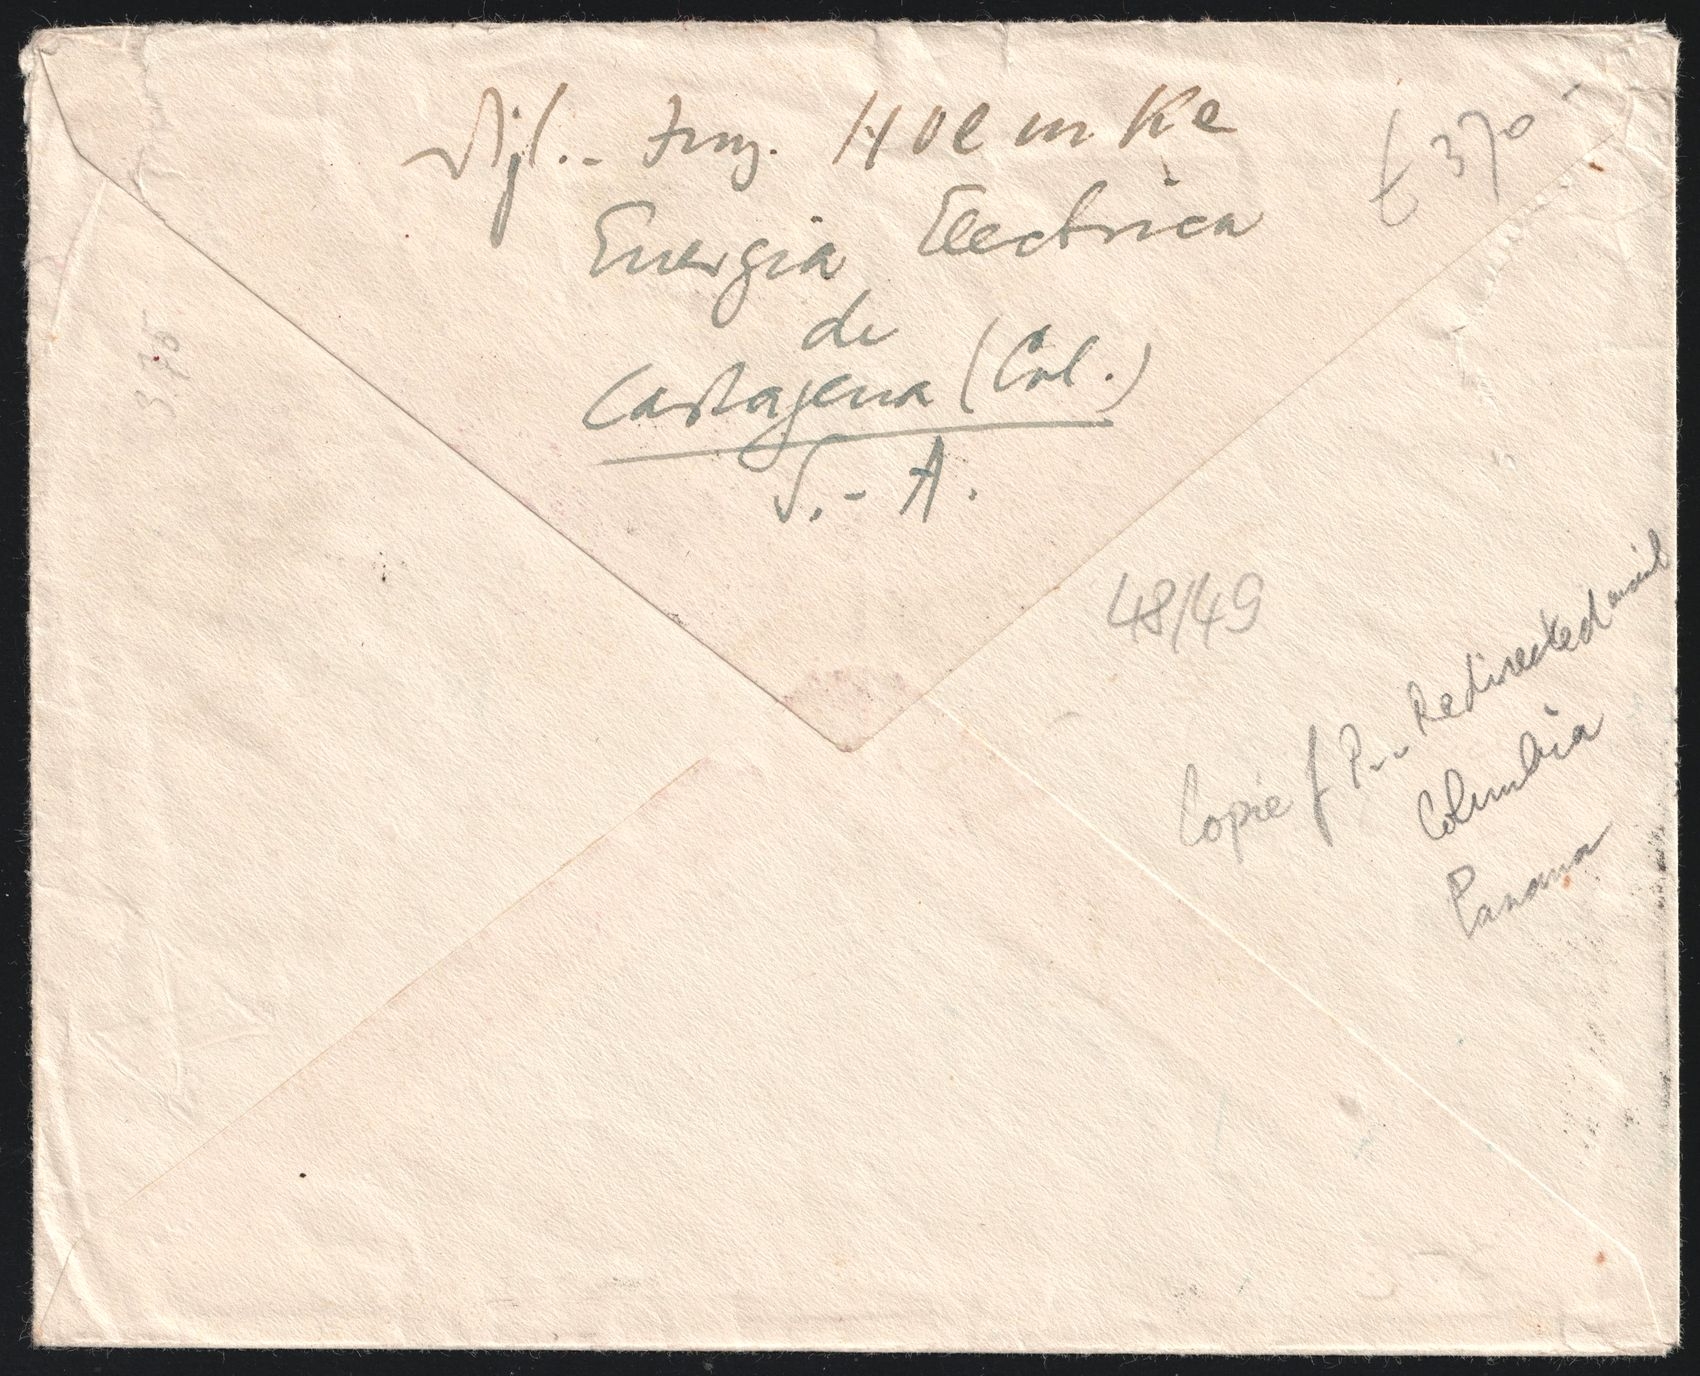 Dipl.- Ing. HOEMKE
Energia Electrica
de
Cartagena (Col.)
S.-A.
£ 370
3.75
48/49
Copie f P... Redirected mail
Columbia
Panama